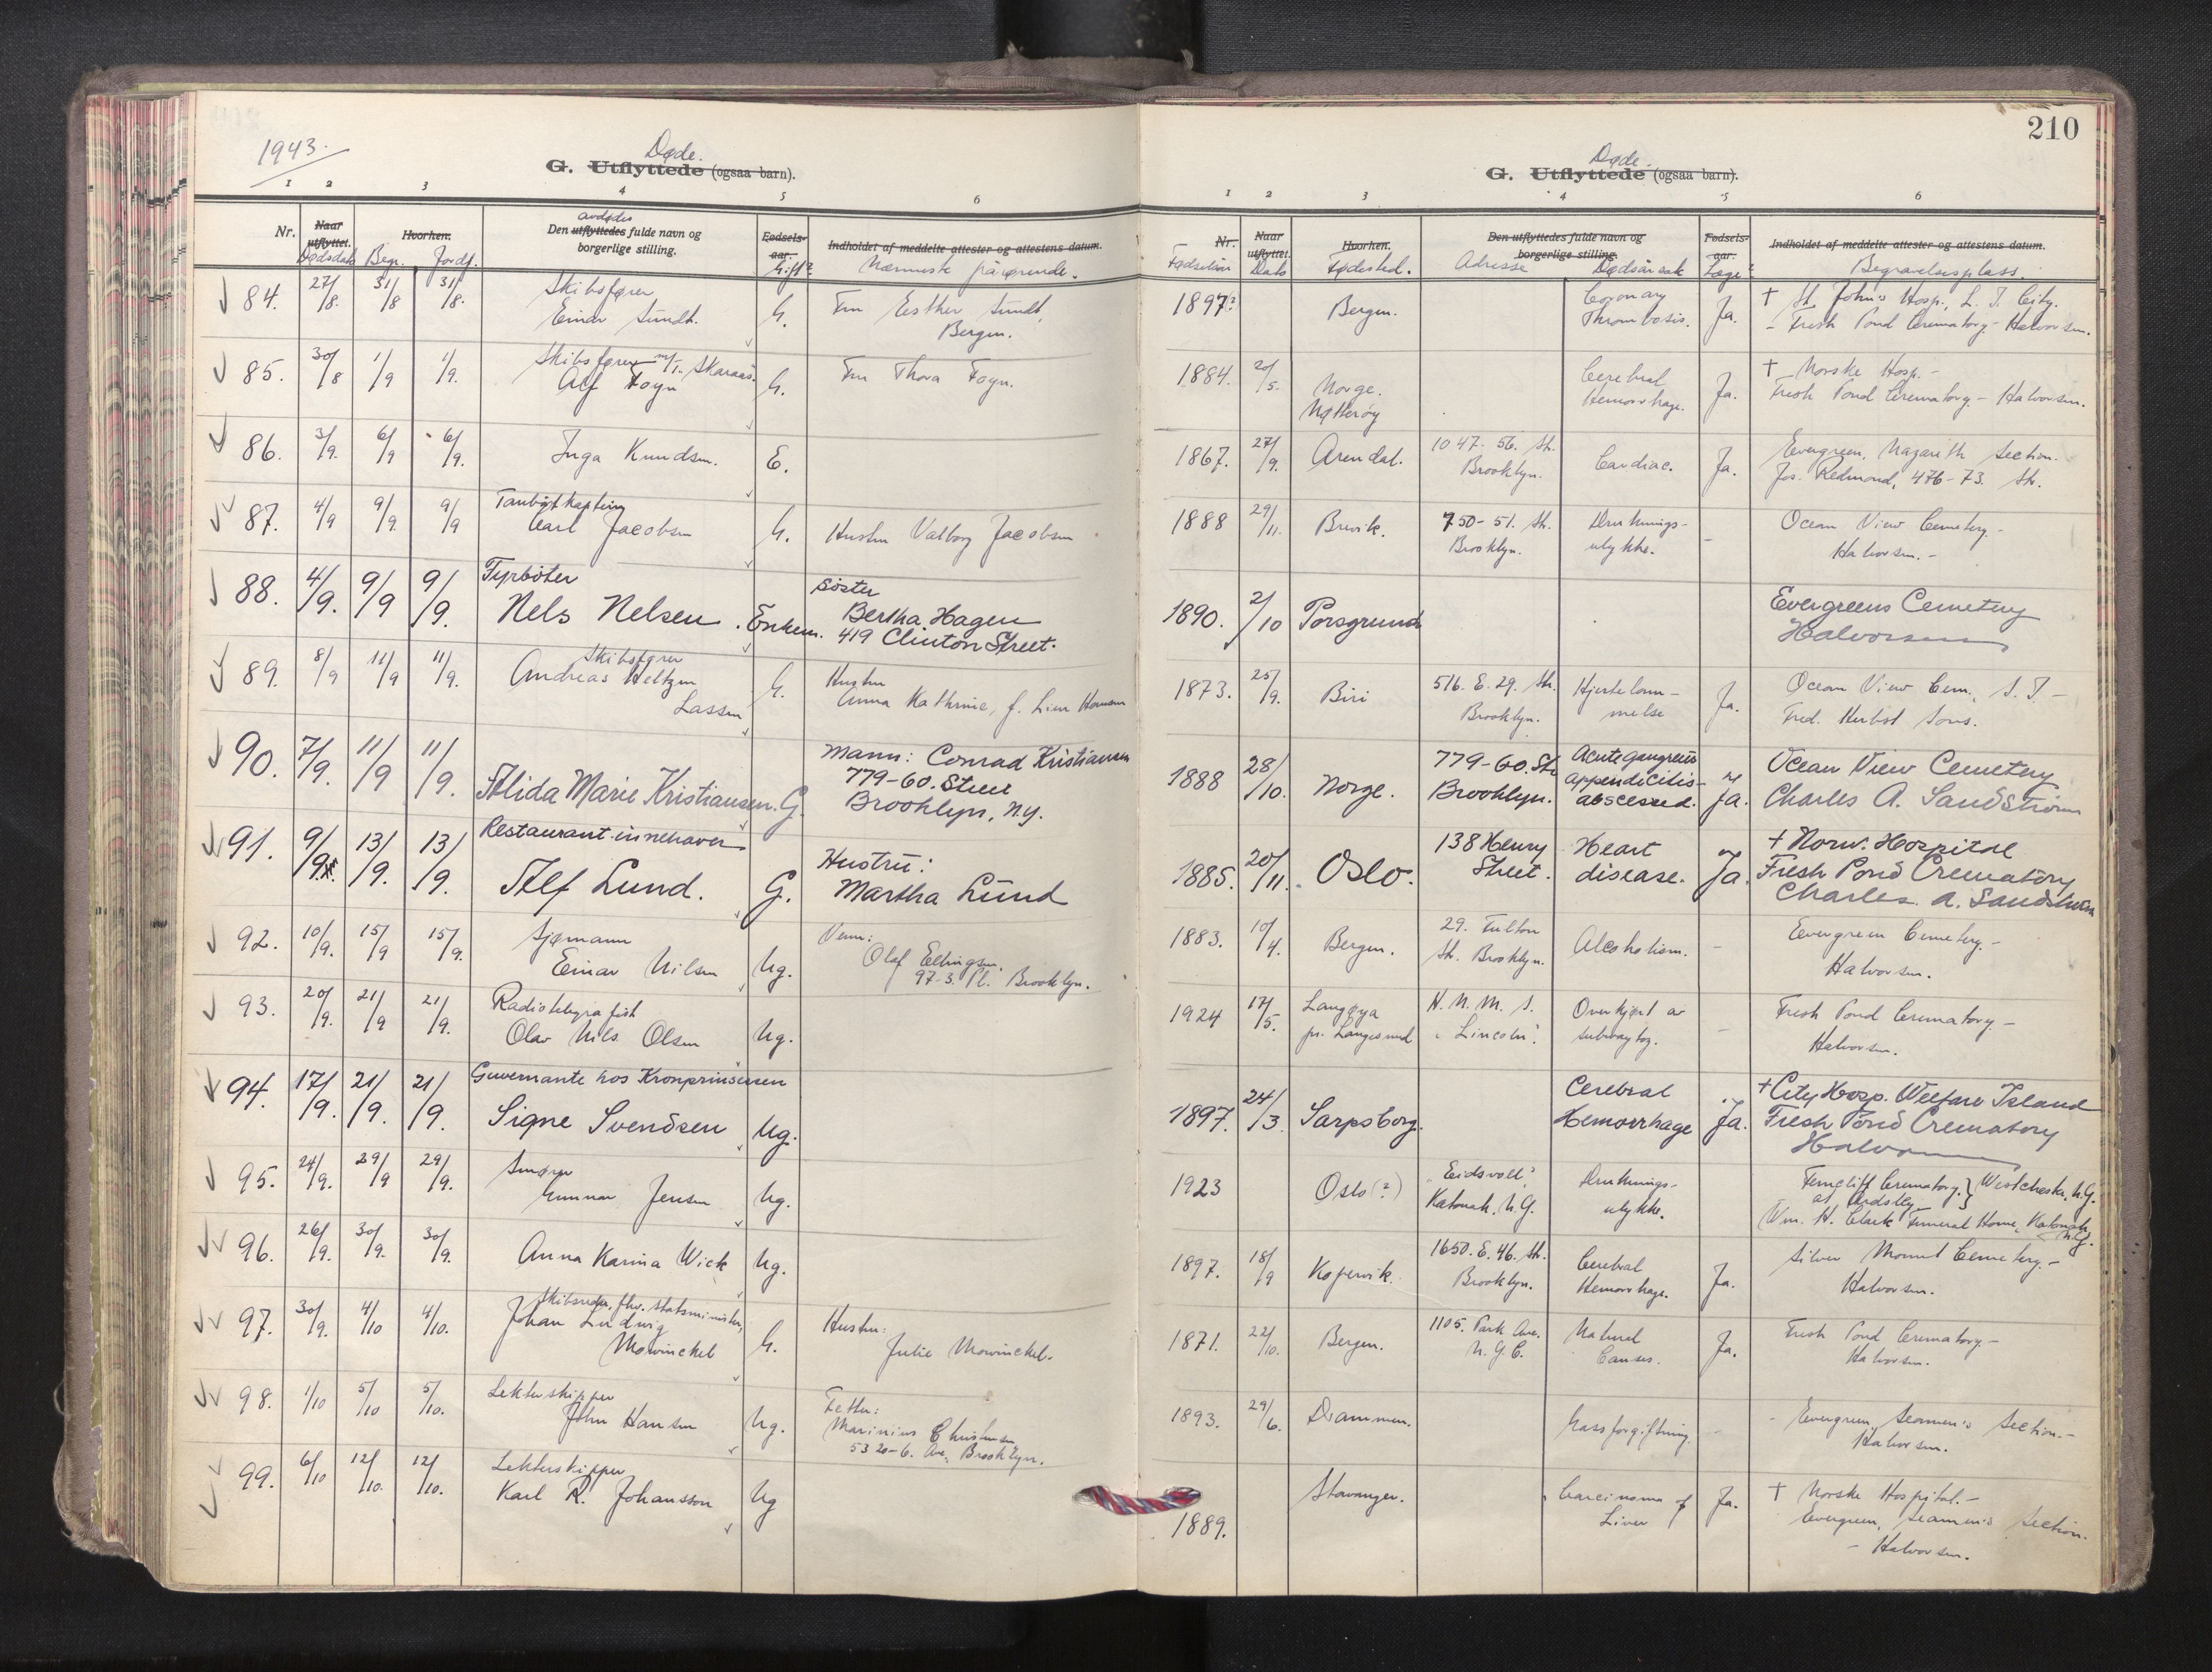 1943.
Døde.
G. Utflyttede (ogsaa barn).
1 2 3 4 5 6
Nr. Naar utflyttet. Hvorhen. Den utflyttedes fulde navn og borgerlige stilling. Fødsels-aar. Indholdet af meddelte attester og attestens datum.
Dødsdato Begr. Jordf. avdødes Gift? Nærmeste pårørende.
84. 27/8. 31/8 31/8. Skibsfører
Einar Sundt. G. Fru Esther Sundt,
Bergen.
85. 30/8 1/9 1/9. Skibsfører m/T. Skaraas.
Alf Fogn G. Fru Thora Fogn.
86. 3/9. 6/9 6/9. Inga Knudsen. E.
87. 4/9 9/9 9/9 Taubåtkaptein
Carl Jacobsen G. Hustru Valborg Jacobsen
88. 4/9. 9/9 9/9. Fyrbøter
Nels Nelsen. Enkem. Søster
Bertha Hagen
419 Clinton Street.
89. 8/9 11/9 11/9. Skibsfører
Andreas Weltzin
Lassen G. Hustru
Anna Kathrine, f. Lien
90. 7/9. 11/9 11/9. Alida Marie Kristiansen. G. Mann: Conrad Kristiansen
779-60. Street
Brooklyn, N.Y.
91. 9/9. 13/9. 13/9. Restaurant-innehaver
Alf Lund. G. Hustru:
Martha Lund
92. 10/9. 15/9 15/9. Sjømann
Einar Nilsen Ug. Venn:
Olaf Ellingsen,
97-3. Pl. Brooklyn.
93. 20/9. 21/9 21/9. Radiotelegrafist
Olav Nils Olsen Ug.
94. 17/9. 21/9. 21/9. Guvernante hos Kronprinsessen
Signe Svendsen Ug.
95. 24/9. 29/9 29/9. Smører
Gunnar Jensen Ug.
96. 26/9. 30/9. 30/9. Anna Karina Wick Ug.
97. 30/9. 4/10 4/10. Skibsreder, fhv. statsminister,
Johan Ludwig
Mowinckel G. Hustru:
Julie Mowinckel.
98. 1/10 5/10 5/10. Lekterskipper
John Hansen Ug. Fetter:
Marinius Christensen
5320-6. Ave, Brooklyn.
99. 6/10 12/10. 12/10. Lekterskipper
Karl R. Johansson Ug
210
Døde.
G. Utflyttede (ogsaa barn).
1 2 3 4 5 6
Nr. Naar utflyttet. Hvorhen. Den utflyttedes fulde navn og borgerlige stilling. Fødsels-aar. Indholdet af meddelte attester og attestens datum.
Fødselsår Dato Fødested. Adresse Dødsårsak Læge? Begravelsesplass.
1897? Bergen. Coronary
Thrombosis. Ja. † St. John's Hosp., L. I. City.
- Fresh Pond Crematory - Halvorsen.
1884. 20/5. Norge.
Nøtterøy Cerebral
Hemorrhage. Ja. † Norske Hosp. -
Fresh Pond Crematory. - Halvorsen.
1867. 27/9. Arendal. 1047-56. St.
Brooklyn. Cardiac. Ja. Evergreen, Nazareth Section.
Jos. Redmond, 476-73. St.
1888 29/11. Brevik. 750-51. St.
Brooklyn. Druknings-
ulykke. - Ocean View Cemetery -
Halvorsen. -
1890. 2/10 Porsgrund Evergreens Cemetery
Halvorsen
1873. 25/9. Biri 516. E. 29. St.
Brooklyn. Hjertelam-
melse Ja. Ocean View Cem., S. I. -
Fred. Herbst Sons.
1888 28/10. Norge. 779-60. St.
Brooklyn. Acute gangrenous
appendicitis-
abscessed. Ja. Ocean View Cemetery
Charles A. Sandström
1885. 20/11. Oslo. 138 Henry
Street. Heart
disease. Ja. † Norw. Hospital
Fresh Pond Crematory
Charles. A. Sandström
1883. 10/4. Bergen. 29. Fulton
St. Brooklyn. Alcoholism. - Evergreen Cemetery. -
Halvorsen.
1924 17/5. Langøya
pr. Langesund H. N. M. S.
"Lincoln". Overkjørt av
subwaytog. - Fresh Pond Crematory. -
Halvorsen.
1897. 24/3. Sarpsborg. Cerebral
Hemorrhage Ja. † City Hosp. Welfare Island
Fresh Pond Crematory
Halvorsen
1923 Oslo (?) "Eidsvoll",
Katonah, N.Y. Druknings-
ulykke. Ferncliff Crematory. } Westchester, N.Y.
at Ardsley
Wm. H. Clark Funeral Home, Katonah,
N.Y.
1897. 18/9 Kopervik. 1650. E. 46. St.
Brooklyn. Cerebral
Hemorrhage. Ja. Silver Mount Cemetery. -
Halvorsen.
1871. 22/10. Bergen. 1105. Park Ave.
N.Y.C. Natural
Causes. Ja. Fresh Pond Crematory -
Halvorsen.
1893. 29/6. Drammen. Gassforgiftning. - - Evergreen, Seamen's Section. -
Halvorsen.
1889. Stavanger. Carcinoma of
Liver Ja. † Norske Hospital. -
Evergreen, Seamen's Section.
- Halvorsen.